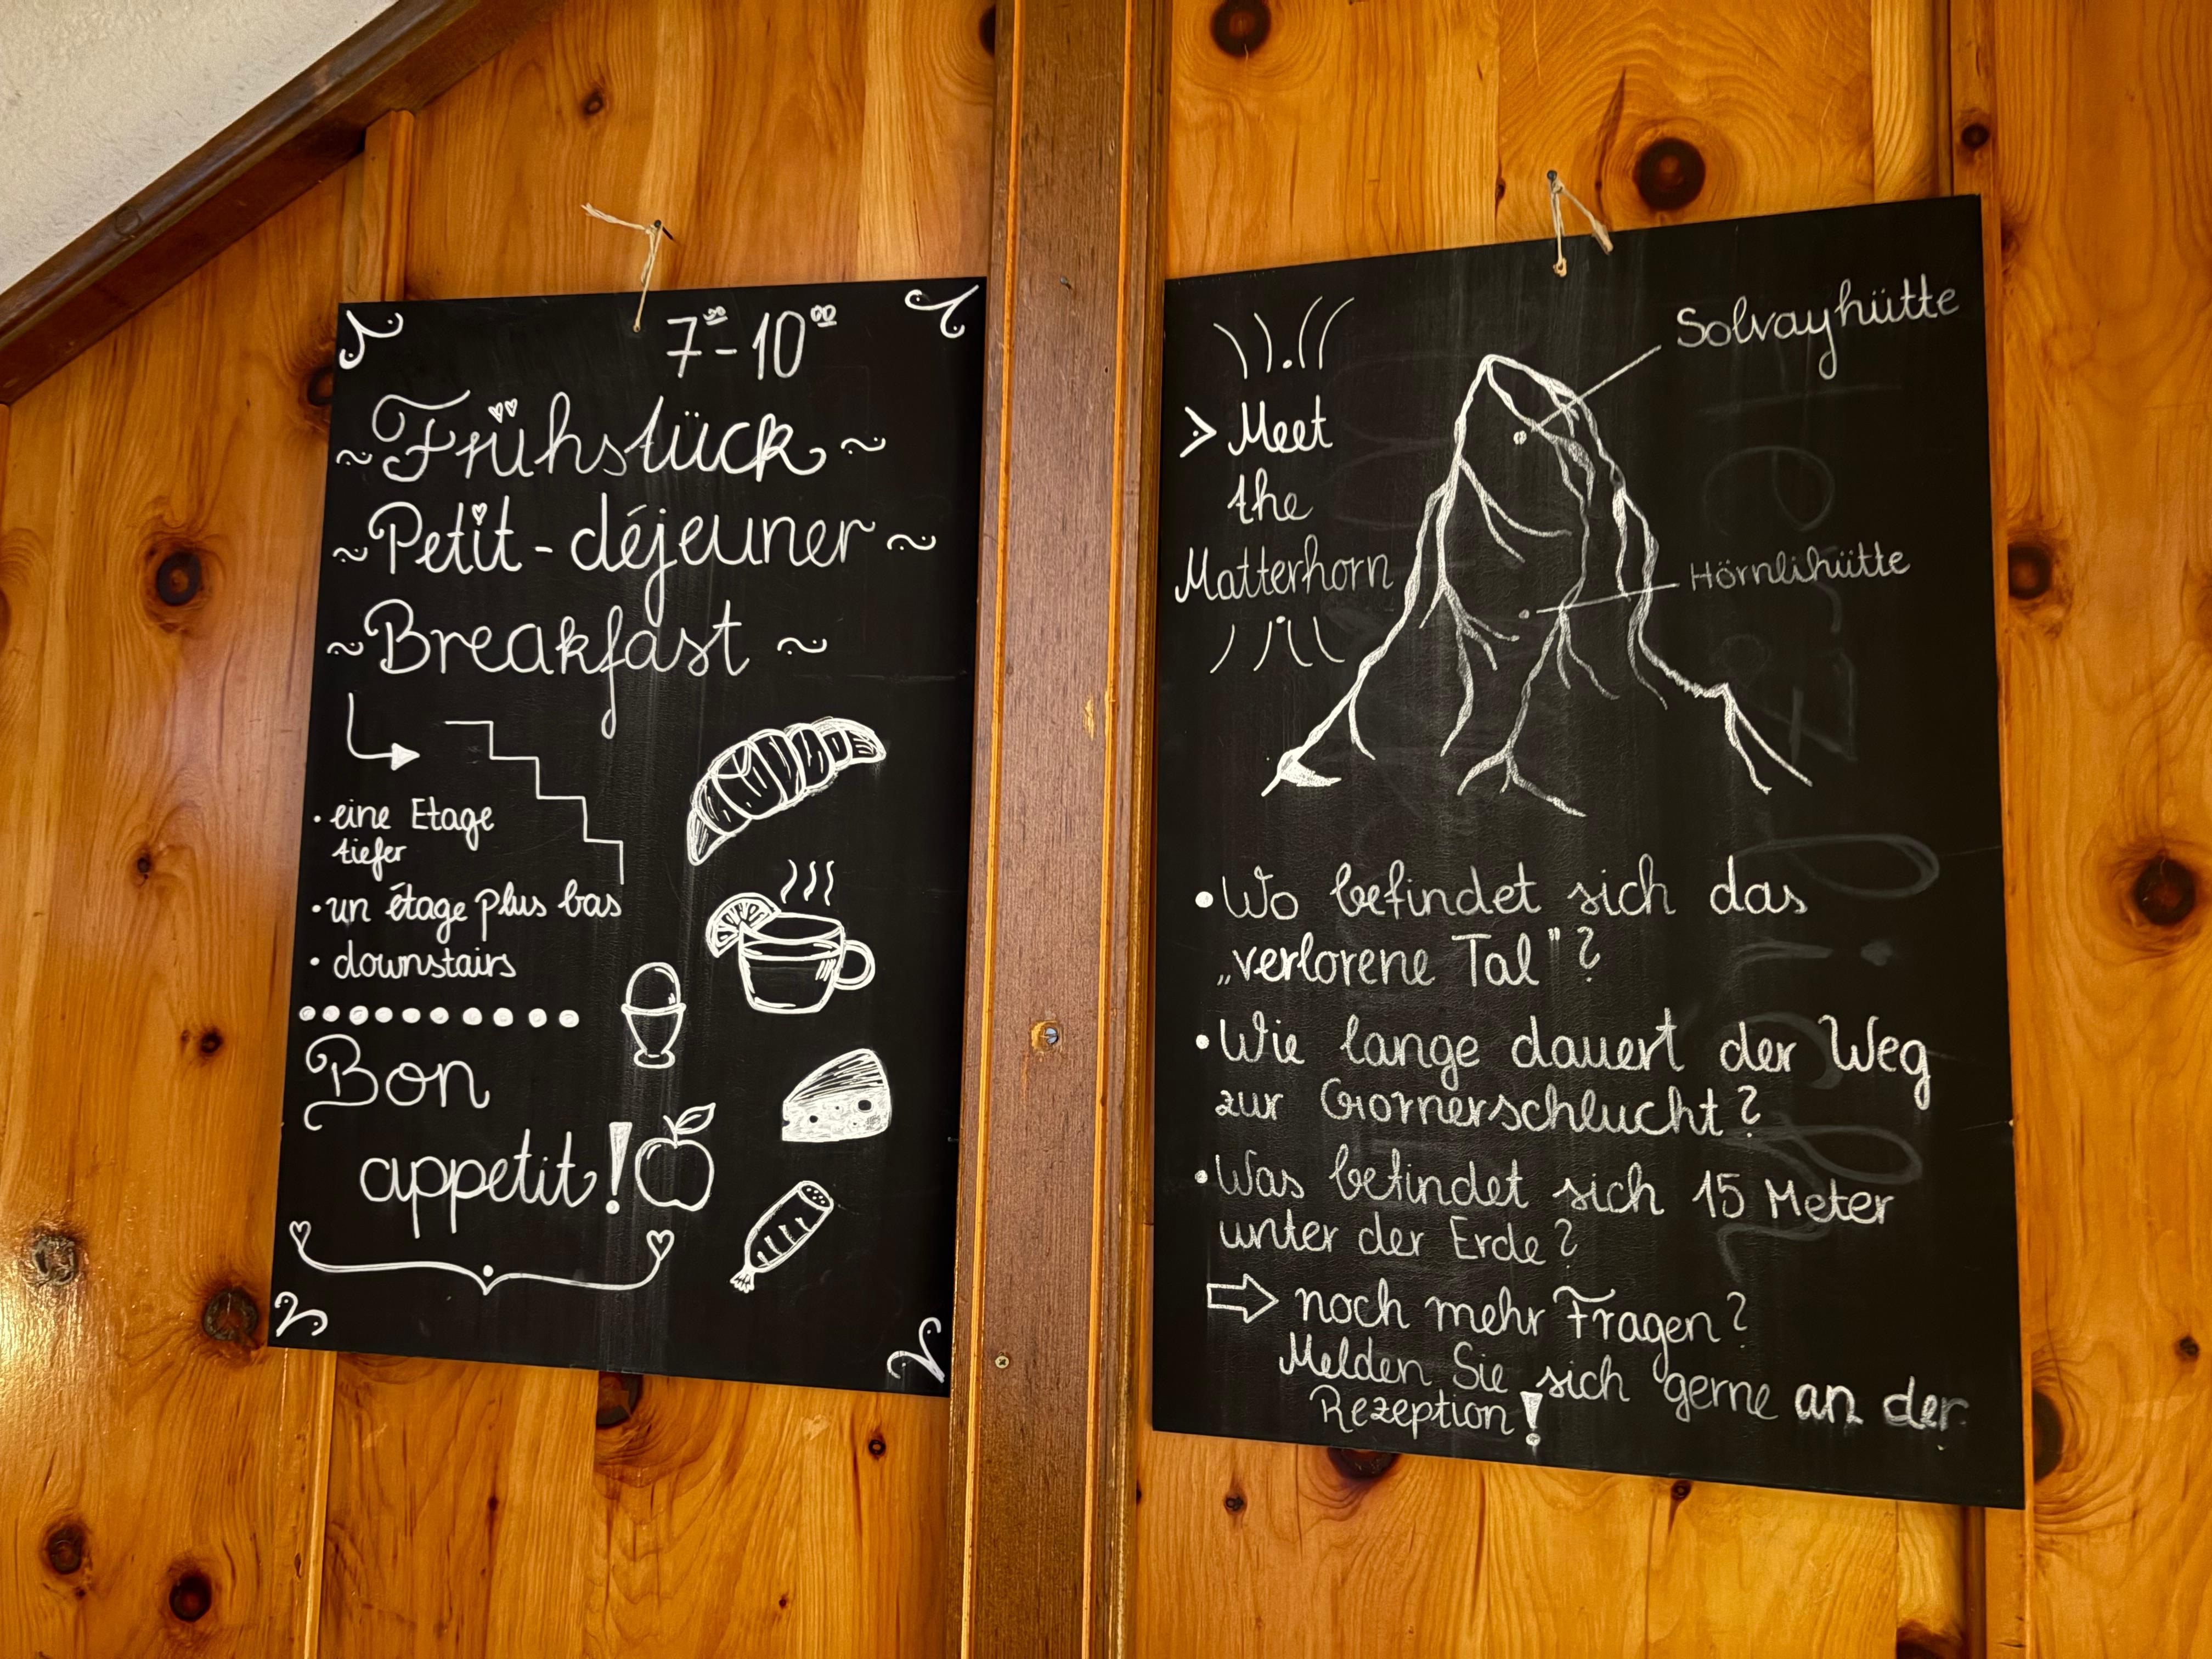 7⁰⁰-10⁰⁰
~Frühstück~
~Petit-déjeuner~
~Breakfast~
• eine Etage
tiefer
• un étage plus bas
• downstairs
Bon
appetit!
Solvayhütte
> Meet
the
Matterhorn
Hörnlihütte
• Wo befindet sich das
„verlorene Tal"?
• Wie lange dauert der Weg
zur Gornerschlucht?
• Was befindet sich 15 Meter
unter der Erde?
⇨ noch mehr Fragen?
Melden Sie sich gerne an der
Rezeption!